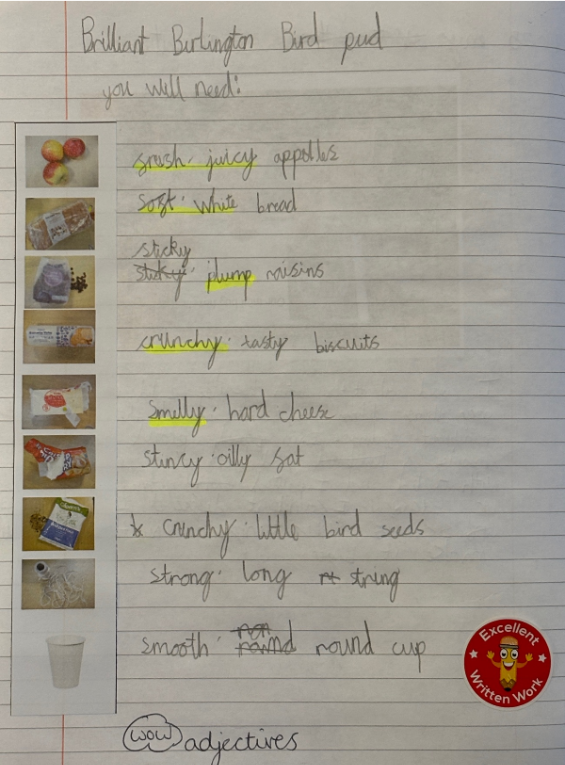 Brilliant Burlington Bird pud
you will need:
sresh. juicy appolles
sost. white bread
sticky
sticky. plump raisins
crunchy. tasty biscuits
smelly. hard cheese
stincy. oilly sat
* crunchy. little bird seeds
strong. long string
smooth. round cup
Excellent
Written Work
wow adjectives